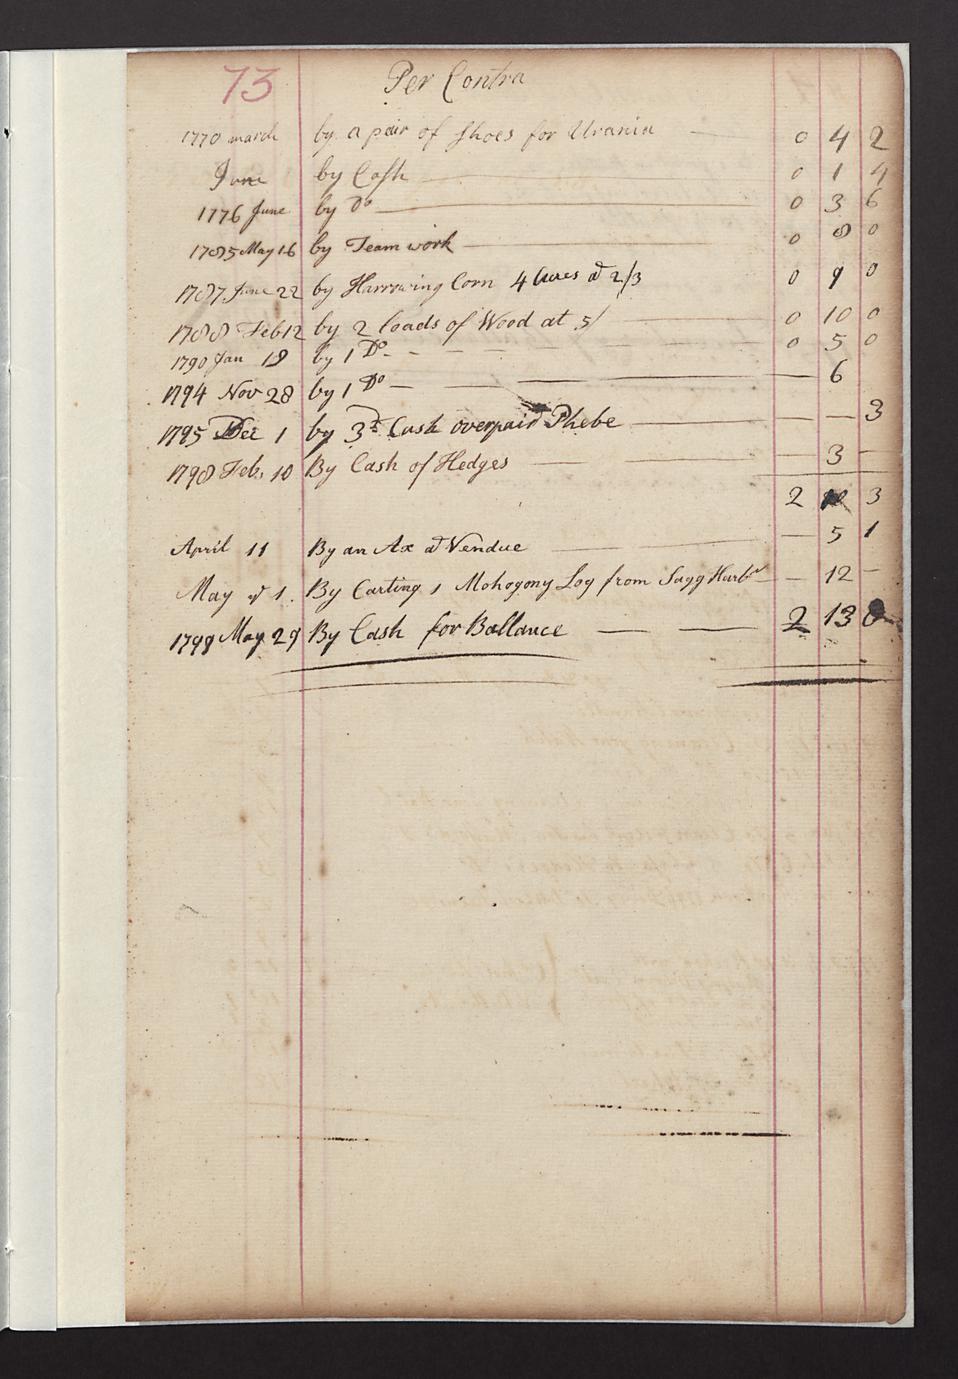 73 Per Contra
1770 march by a pair of Shoes for Urania 0 4 2
June by Cash 0 1 4
1776 June by Do 0 3 6
1785 May 16 by Team work 0 8 0
1787 June 22 by Harrowing Corn 4 Acres at 2/3 0 9 0
1788 Feb 12 by 2 loads of Wood at 5/ 0 10 0
1790 Jan 19 by 1 Do 0 5 0
1794 Nov 28 by 1 Do 6
1795 Dec 1 by 3d Cash overpaid Phebe 3
1798 Feb. 10 By Cash of Hedges 3
2 10 3
April 11 By an Ax at Vendue 5 1
May 1. By Carting 1 Mohogony Log from Sagg Harbr 12
1799 May 29 By Cash for Ballance 2 13 0